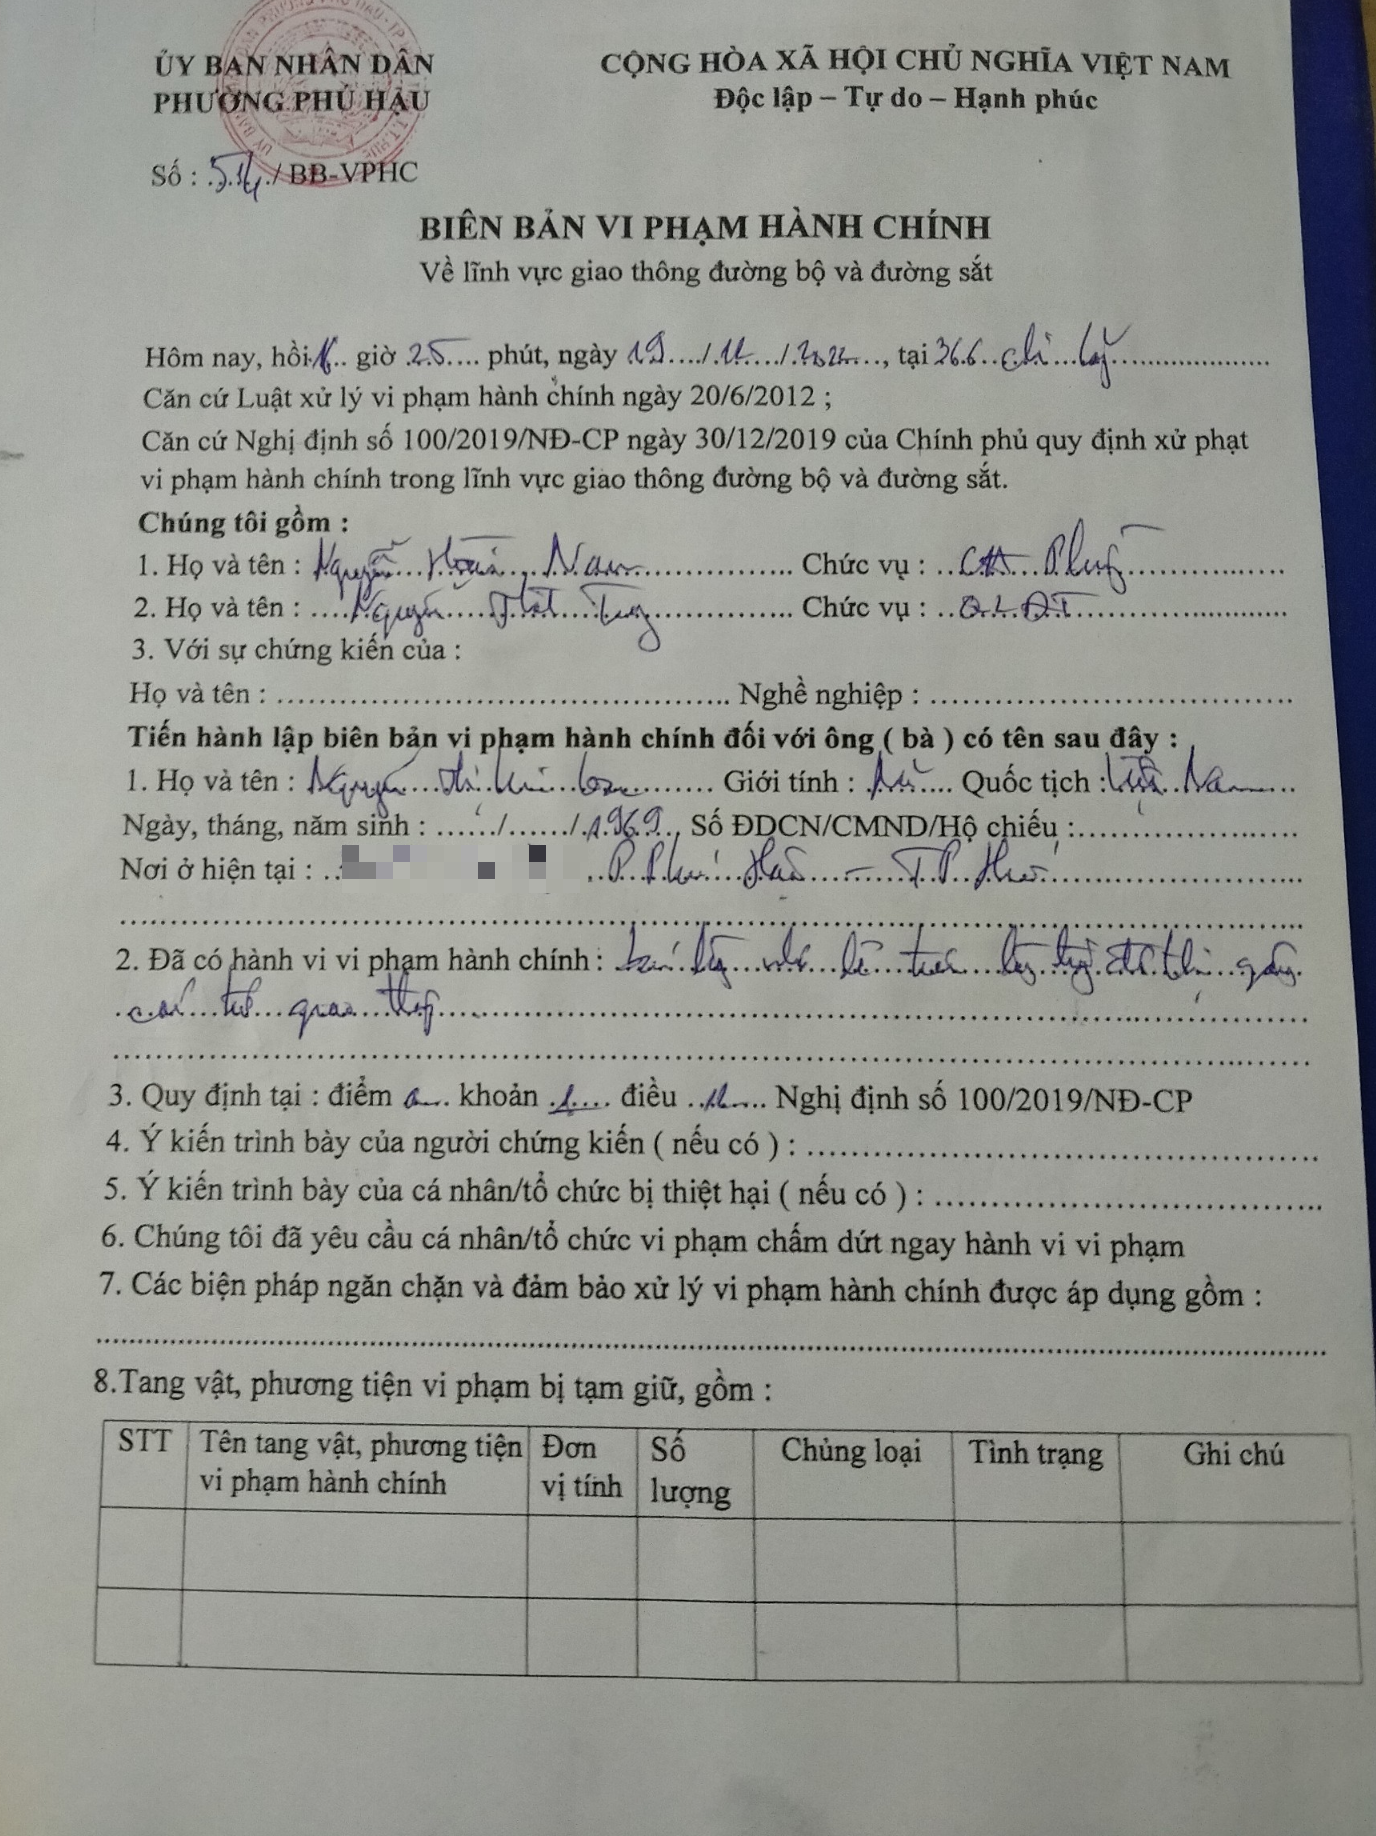 ỦY BAN NHÂN DÂN
PHƯỜNG PHÚ HẬU
CỘNG HÒA XÃ HỘI CHỦ NGHĨA VIỆT NAM
Độc lập – Tự do – Hạnh phúc
Số : / BB-VPHC
BIÊN BẢN VI PHẠM HÀNH CHÍNH
Về lĩnh vực giao thông đường bộ và đường sắt
Hôm nay, hồi giờ 25 phút, ngày 19 / / , tại 366 chi lăng
Căn cứ Luật xử lý vi phạm hành chính ngày 20/6/2012 ;
Căn cứ Nghị định số 100/2019/NĐ-CP ngày 30/12/2019 của Chính phủ quy định xử phạt
vi phạm hành chính trong lĩnh vực giao thông đường bộ và đường sắt.
Chúng tôi gồm :
1. Họ và tên : Nguyễn Hoài Nam Chức vụ :
2. Họ và tên : Nguyễn Chức vụ : QLĐT
3. Với sự chứng kiến của :
Họ và tên : Nghề nghiệp :
Tiến hành lập biên bản vi phạm hành chính đối với ông ( bà ) có tên sau đây :
1. Họ và tên : Nguyễn Thị Kim Giới tính : Nữ Quốc tịch : Việt Nam
Ngày, tháng, năm sinh : / / 1969, Số ĐDCN/CMND/Hộ chiếu :
Nơi ở hiện tại : P. Phú Hậu - T.P Huế
2. Đã có hành vi vi phạm hành chính : bán hàng nhỏ lẻ trên lòng đường đô thị gây
cản trở giao thông
3. Quy định tại : điểm a khoản 1 điều 12 Nghị định số 100/2019/NĐ-CP
4. Ý kiến trình bày của người chứng kiến ( nếu có ) :
5. Ý kiến trình bày của cá nhân/tổ chức bị thiệt hại ( nếu có ) :
6. Chúng tôi đã yêu cầu cá nhân/tổ chức vi phạm chấm dứt ngay hành vi vi phạm
7. Các biện pháp ngăn chặn và đảm bảo xử lý vi phạm hành chính được áp dụng gồm :
8.Tang vật, phương tiện vi phạm bị tạm giữ, gồm :
STT Tên tang vật, phương tiện Đơn Số Chủng loại Tình trạng Ghi chú
vi phạm hành chính vị tính lượng